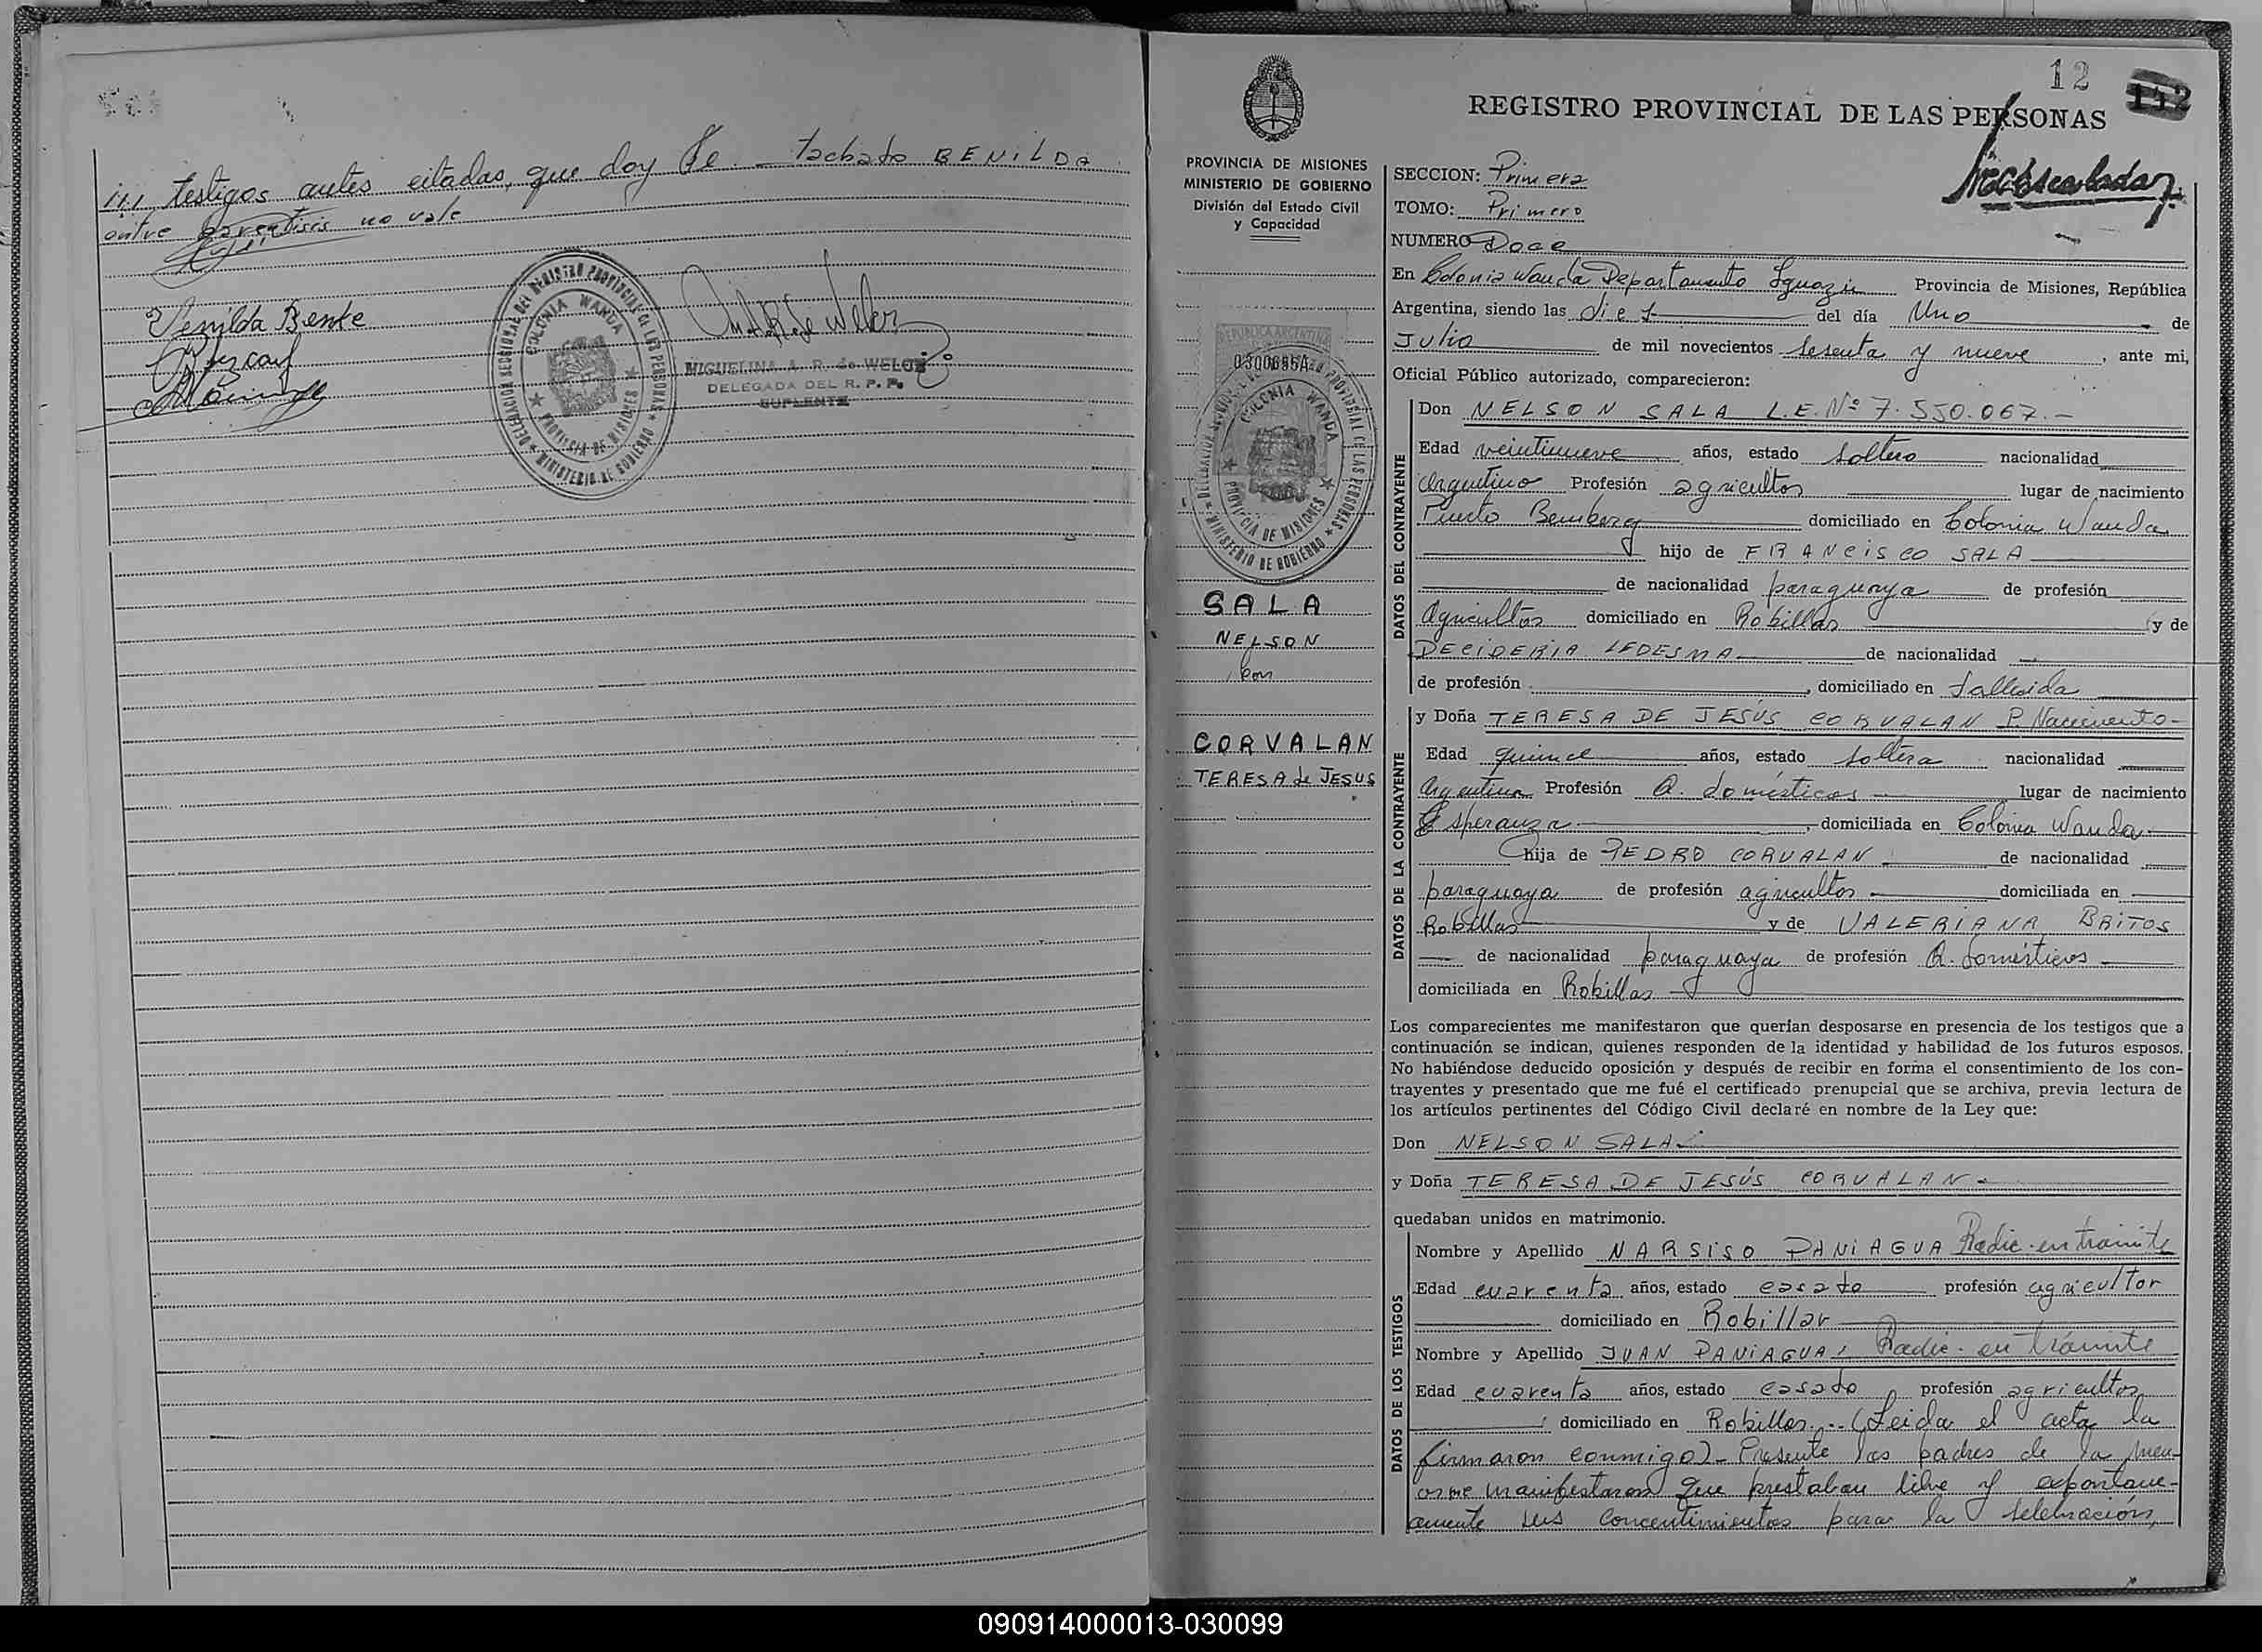 ¡¡¡ testigos antes citadas, que doy fe. — tachado BENILDA
entre parentisis no vale
Venilda Bente
DELEGACION SECCIONAL DEL REGISTRO PROVINCIAL DE LAS PERSONAS
COLONIA WANDA
PROVINCIA DE MISIONES
MINISTERIO DE GOBIERNO
MIGUELINA A. R. de WELCZ
DELEGADA DEL R. P. P.
SUPLENTE
12
REGISTRO PROVINCIAL DE LAS PERSONAS
PROVINCIA DE MISIONES
MINISTERIO DE GOBIERNO
División del Estado Civil
y Capacidad
REPUBLICA ARGENTINA
0300695A
COLONIA WANDA
PROVINCIA DE MISIONES
MINISTERIO DE GOBIERNO
SALA
NELSON
con
CORVALAN
TERESA de JESUS
SECCION: Primera
TOMO: Primero
NUMERO Doce
En Colonia Wanda Departamento Iguazú Provincia de Misiones, República
Argentina, siendo las diez del día Uno de
Julio de mil novecientos sesenta y nueve, ante mi,
Oficial Público autorizado, comparecieron:
DATOS DEL CONTRAYENTE
Don NELSON SALA L.E. Nº 7.550.067.-
Edad veintinueve años, estado soltero nacionalidad
argentino Profesión agricultor lugar de nacimiento
Puerto Bemberg domiciliado en Colonia Wanda
hijo de FRANCISCO SALA
de nacionalidad paraguaya de profesión
Agricultor domiciliado en Robillar y de
DECIDERIA LEDESMA de nacionalidad
de profesión , domiciliado en fallecida
DATOS DE LA CONTRAYENTE
y Doña TERESA DE JESÚS CORVALAN P. Nacimiento-
Edad quince años, estado soltera nacionalidad
argentina Profesión Q. domésticos lugar de nacimiento
Esperanza , domiciliada en Colonia Wanda
hija de PEDRO CORVALAN de nacionalidad
paraguaya de profesión agricultor domiciliada en
Robillar y de VALERIANA BRITOS
de nacionalidad paraguaya de profesión Q. domésticos
domiciliada en Robillar
Los comparecientes me manifestaron que querían desposarse en presencia de los testigos que a
continuación se indican, quienes responden de la identidad y habilidad de los futuros esposos.
No habiéndose deducido oposición y después de recibir en forma el consentimiento de los con-
trayentes y presentado que me fué el certificado prenupcial que se archiva, previa lectura de
los artículos pertinentes del Código Civil declaré en nombre de la Ley que:
Don NELSON SALA
y Doña TERESA DE JESÚS CORVALAN
quedaban unidos en matrimonio.
DATOS DE LOS TESTIGOS
Nombre y Apellido NARSISO PANIAGUA Radic. en tramite
Edad cuarenta años, estado casado profesión agricultor
domiciliado en Robillar
Nombre y Apellido JUAN PANIAGUA, Radic. en trámite
Edad cuarenta años, estado casado profesión agricultor
domiciliado en Robillar.-- (Leida el acta la
firmaron conmigo)- Presente los padres de la men-
or me manifestaron que prestaban libre y expontane-
amente sus concentimientos para la selebración
090914000013-030099